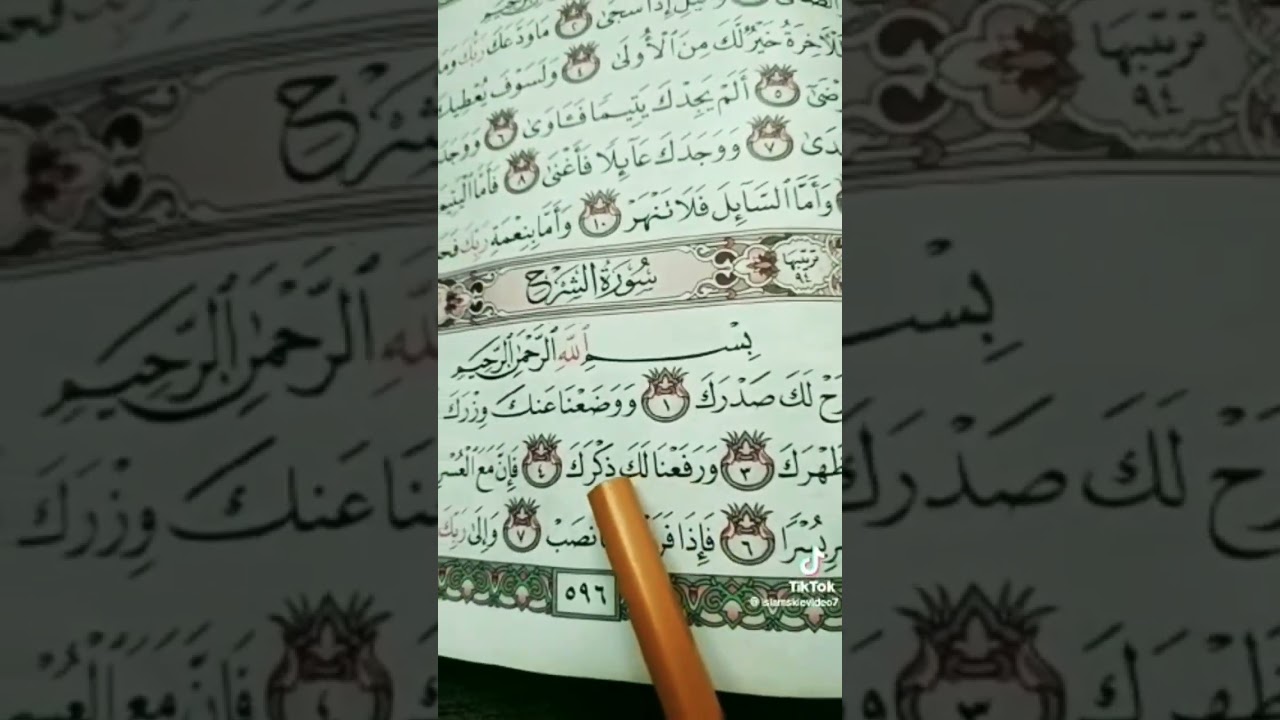 وَٱلَّيْلِ إِذَا سَجَىٰ ٢ مَا وَدَّعَكَ رَبُّكَ وَمَا
لَلْآخِرَةُ خَيْرٌ لَّكَ مِنَ ٱلْأُولَىٰ ٤ وَلَسَوْفَ يُعْطِيكَ
٥ أَلَمْ يَجِدْكَ يَتِيمًا فَـَٔاوَىٰ ٦
٧ وَوَجَدَكَ عَآئِلًا فَأَغْنَىٰ ٨ فَأَمَّا ٱلْيَتِيمَ
وَأَمَّا ٱلسَّآئِلَ فَلَا تَنْهَرْ ١٠ وَأَمَّا بِنِعْمَةِ رَبِّكَ
سُورَةُ الشَّرْحِ
ترتيبها ٩٤
بِسْمِ ٱللَّهِ ٱلرَّحْمَٰنِ ٱلرَّحِيمِ
لَكَ صَدْرَكَ ١ وَوَضَعْنَا عَنكَ وِزْرَكَ
ظَهْرَكَ ٣ وَرَفَعْنَا لَكَ ذِكْرَكَ ٤ فَإِنَّ مَعَ ٱلْعُسْرِ
يُسْرًا ٦ فَإِذَا ٧ وَإِلَىٰ رَبِّكَ
٥٩٦
TikTok
@islamskievideo7